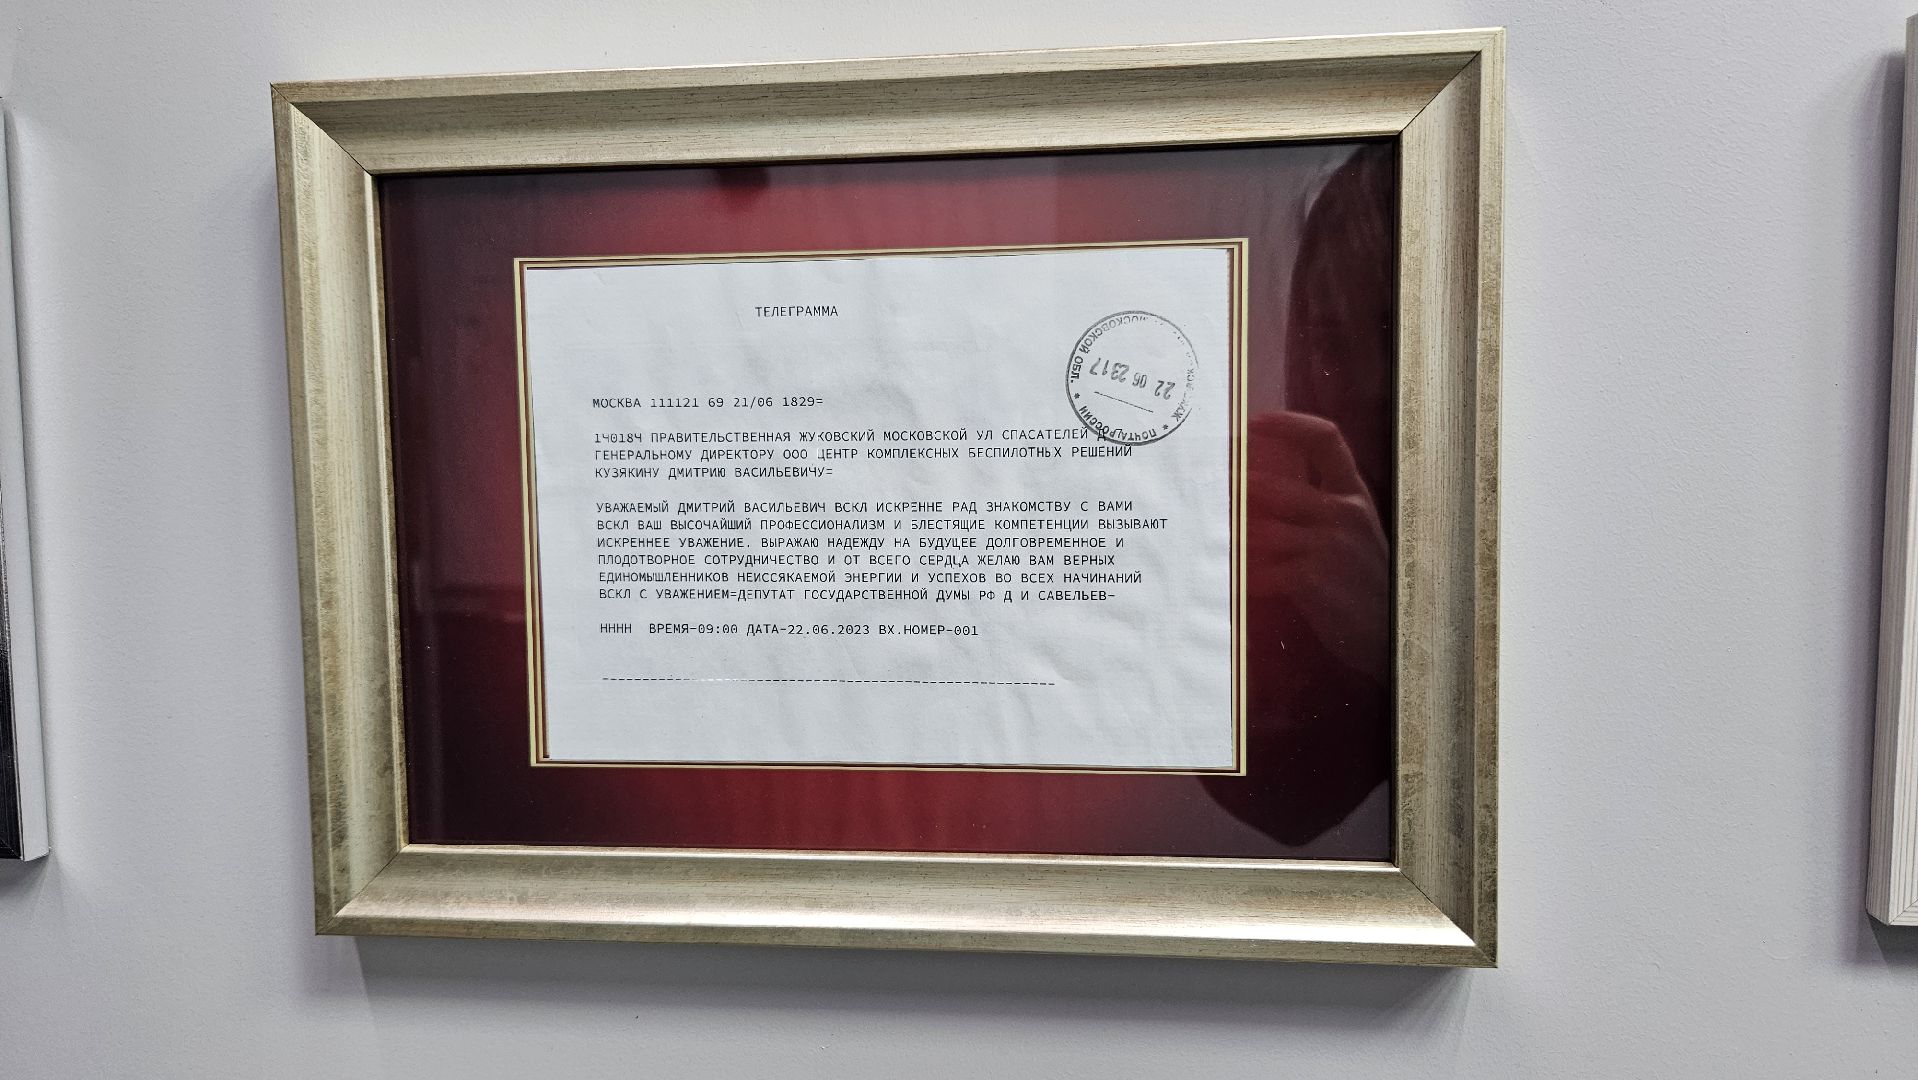 ТЕЛЕГРАММА
МОСКВА 111121 69 21/06 1829=
1Ч018Ч ПРАВИТЕЛЬСТВЕННАЯ ЖУКОВСКИЙ МОСКОВСКОЙ УЛ СПАСАТЕЛЕЙ
ГЕНЕРАЛЬНОМУ ДИРЕКТОРУ ООО ЦЕНТР КОМПЛЕКСНЫХ БЕСПИЛОТНЫХ РЕШЕНИЙ
КУЗЯКИНУ ДМИТРИЮ ВАСИЛЬЕВИЧУ=
УВАЖАЕМЫЙ ДМИТРИЙ ВАСИЛЬЕВИЧ ВСКЛ ИСКРЕННЕ РАД ЗНАКОМСТВУ С ВАМИ
ВСКЛ ВАШ ВЫСОЧАЙШИЙ ПРОФЕССИОНАЛИЗМ И БЛЕСТЯЩИЕ КОМПЕТЕНЦИИ ВЫЗЫВАЮТ
ИСКРЕННЕЕ УВАЖЕНИЕ. ВЫРАЖАЮ НАДЕЖДУ НА БУДУЩЕЕ ДОЛГОВРЕМЕННОЕ И
ПЛОДОТВОРНОЕ СОТРУДНИЧЕСТВО И ОТ ВСЕГО СЕРДЦА ЖЕЛАЮ ВАМ ВЕРНЫХ
ЕДИНОМЫШЛЕННИКОВ НЕИССЯКАЕМОЙ ЭНЕРГИИ И УСПЕХОВ ВО ВСЕХ НАЧИНАНИЙ
ВСКЛ С УВАЖЕНИЕМ=ДЕПУТАТ ГОСУДАРСТВЕННОЙ ДУМЫ РФ Д И САВЕЛЬЕВ-
НННН ВРЕМЯ-09:00 ДАТА-22.06.2023 ВХ.НОМЕР-001
ПОЧТА РОССИИ
МОСКОВСКОЙ ОБЛ.
22 06 2317